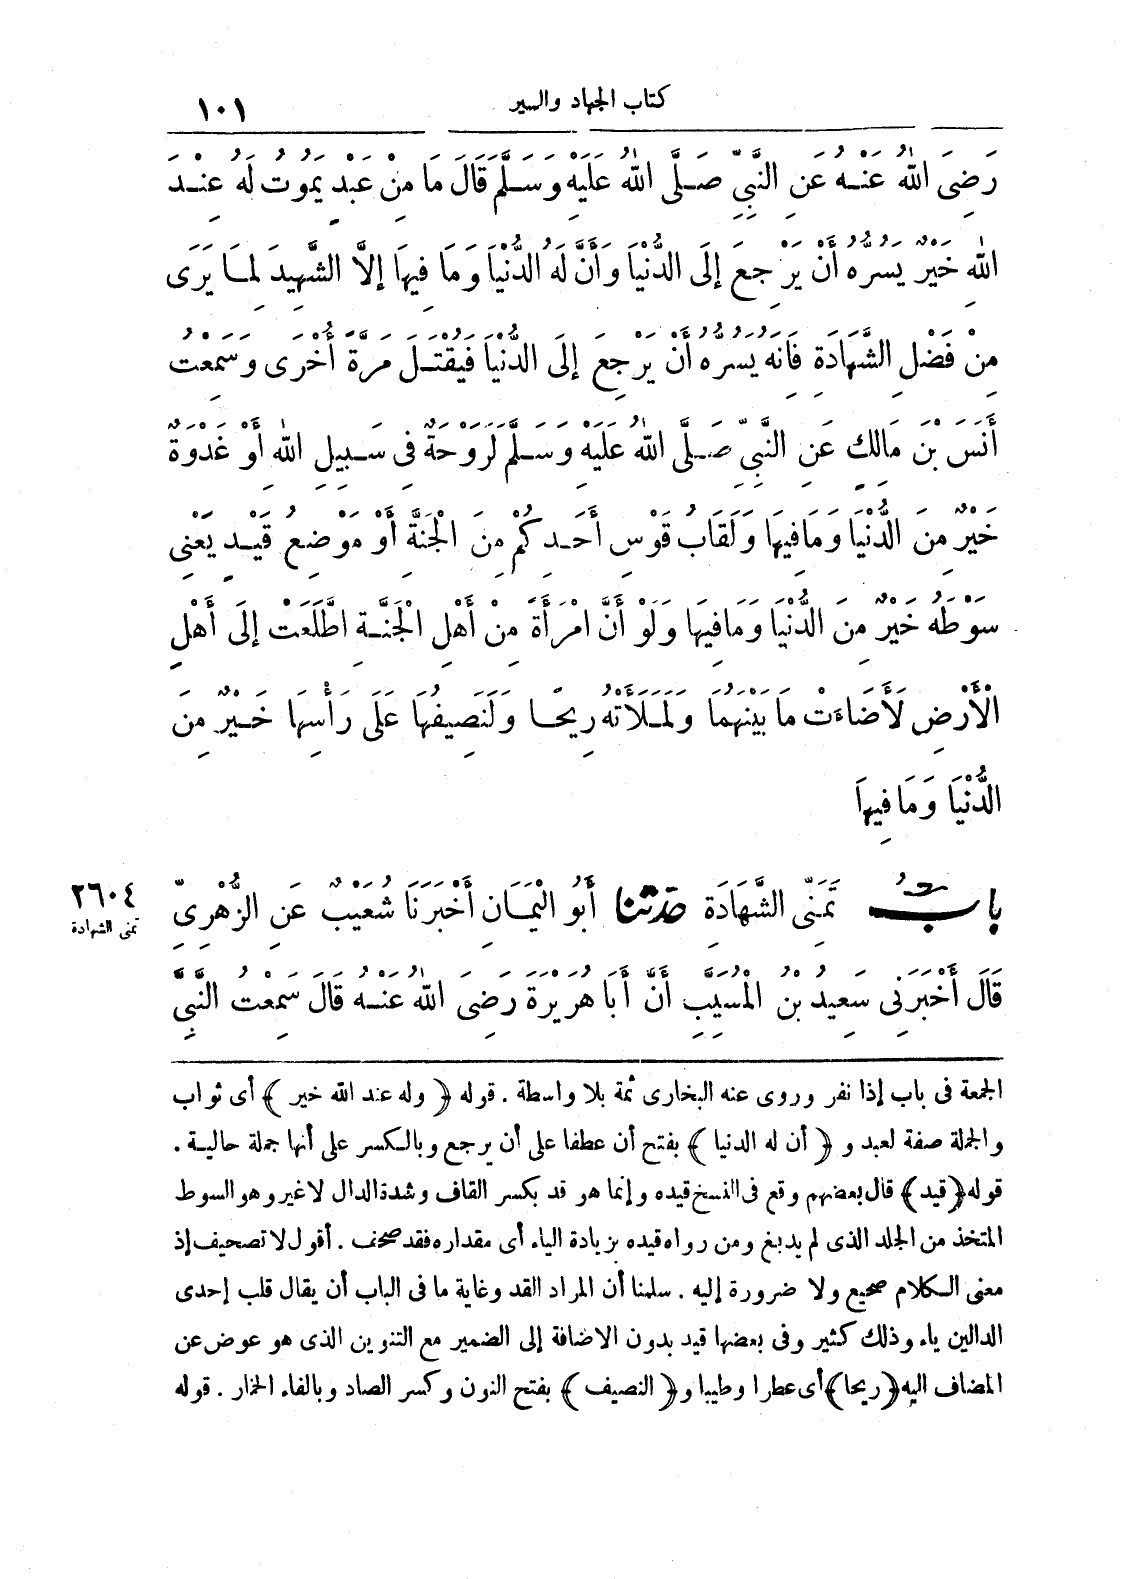 كتاب الجهاد والسير ١٠١
رَضِىَ اللهُ عَنْهُ عَنِ النَّبِيِّ صَلَّى اللهُ عَلَيْهِ وَسَلَّمَ قَالَ مَا مِنْ عَبْدٍ يَمُوتُ لَهُ عِنْدَ
اللهِ خَيْرٌ يَسُرُّهُ أَنْ يَرْجِعَ إِلَى الدُّنْيَا وَأَنَّ لَهُ الدُّنْيَا وَمَا فِيهَا إِلاَّ الشَّهِيدَ لِمَا يَرَى
مِنْ فَضْلِ الشَّهَادَةِ فَإِنَّهُ يَسُرُّهُ أَنْ يَرْجِعَ إِلَى الدُّنْيَا فَيُقْتَلَ مَرَّةً أُخْرَى وَسَمِعْتُ
أَنَسَ بْنَ مَالِكٍ عَنِ النَّبِيِّ صَلَّى اللهُ عَلَيْهِ وَسَلَّمَ لَرَوْحَةٌ فِى سَبِيلِ اللهِ أَوْ غَدْوَةٌ
خَيْرٌ مِنَ الدُّنْيَا وَمَا فِيهَا وَلَقَابُ قَوْسِ أَحَدِكُمْ مِنَ الْجَنَّةِ أَوْ مَوْضِعُ قِيدٍ يَعْنِى
سَوْطَهُ خَيْرٌ مِنَ الدُّنْيَا وَمَا فِيهَا وَلَوْ أَنَّ امْرَأَةً مِنْ أَهْلِ الْجَنَّةِ اطَّلَعَتْ إِلَى أَهْلِ
الْأَرْضِ لَأَضَاءَتْ مَا بَيْنَهُمَا وَلَمَلَأَتْهُ رِيحًا وَلَنَصِيفُهَا عَلَى رَأْسِهَا خَيْرٌ مِنَ
الدُّنْيَا وَمَا فِيهَا
بَابُ تَمَنِّى الشَّهَادَةِ حَدَّثَنَا أَبُو الْيَمَانِ أَخْبَرَنَا شُعَيْبٌ عَنِ الزُّهْرِىِّ
٢٦٠٤
تمنى الشهادة
قَالَ أَخْبَرَنِى سَعِيدُ بْنُ الْمُسَيَّبِ أَنَّ أَبَا هُرَيْرَةَ رَضِىَ اللهُ عَنْهُ قَالَ سَمِعْتُ النَّبِيَّ
الجمعة فى باب إذا نفر وروى عنه البخارى ثمة بلا واسطة . قوله ﴿ وله عند الله خير ﴾ أى ثواب
والجملة صفة لعبد و ﴿ أن له الدنيا ﴾ بفتح أن عطفا على أن يرجع وبالكسر على أنها جملة حالية .
قوله ﴿ قيد ﴾ قال بعضهم وقع فى النسخ قيده وإنما هو قد بكسر القاف وشدة الدال لا غير وهو السوط
المتخذ من الجلد الذى لم يدبغ ومن رواه قيده بزيادة الياء أى مقداره فقد صحف . أقول لا تصحيف إذ
معنى الكلام صحيح ولا ضرورة إليه . سلمنا أن المراد القد وغاية ما فى الباب أن يقال قلب إحدى
الدالين ياء وذلك كثير وفى بعضها قيد بدون الاضافة إلى الضمير مع التنوين الذى هو عوض عن
المضاف اليه ﴿ ريحا ﴾ أى عطرا وطيبا و ﴿ النصيف ﴾ بفتح النون وكسر الصاد وبالفاء الخمار . قوله